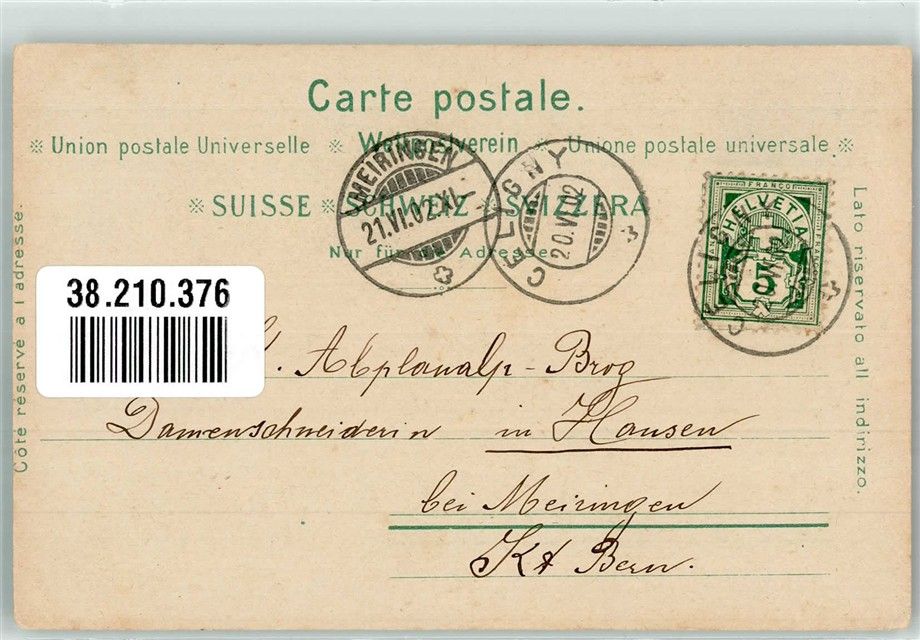 Carte postale.
※ Union postale Universelle ※ Weltpostverein ※ Unione postale universale ※
※ SUISSE ※ SCHWEIZ ※ SVIZZERA
Nur für die Adresse
MEIRINGEN
21.VI.02.XI
CÉLIGNY
20.VI.02
FRANCO
HELVETIA
5
Côté réservé à l adresse.
Lato riservato all indirizzo.
38.210.376
Abplanalp - Brog
Damenschneiderin in Hausen
bei Meiringen
Kt Bern.